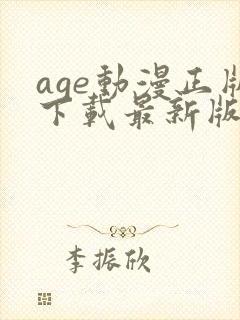 age動漫正版
下載最新版
李振欣